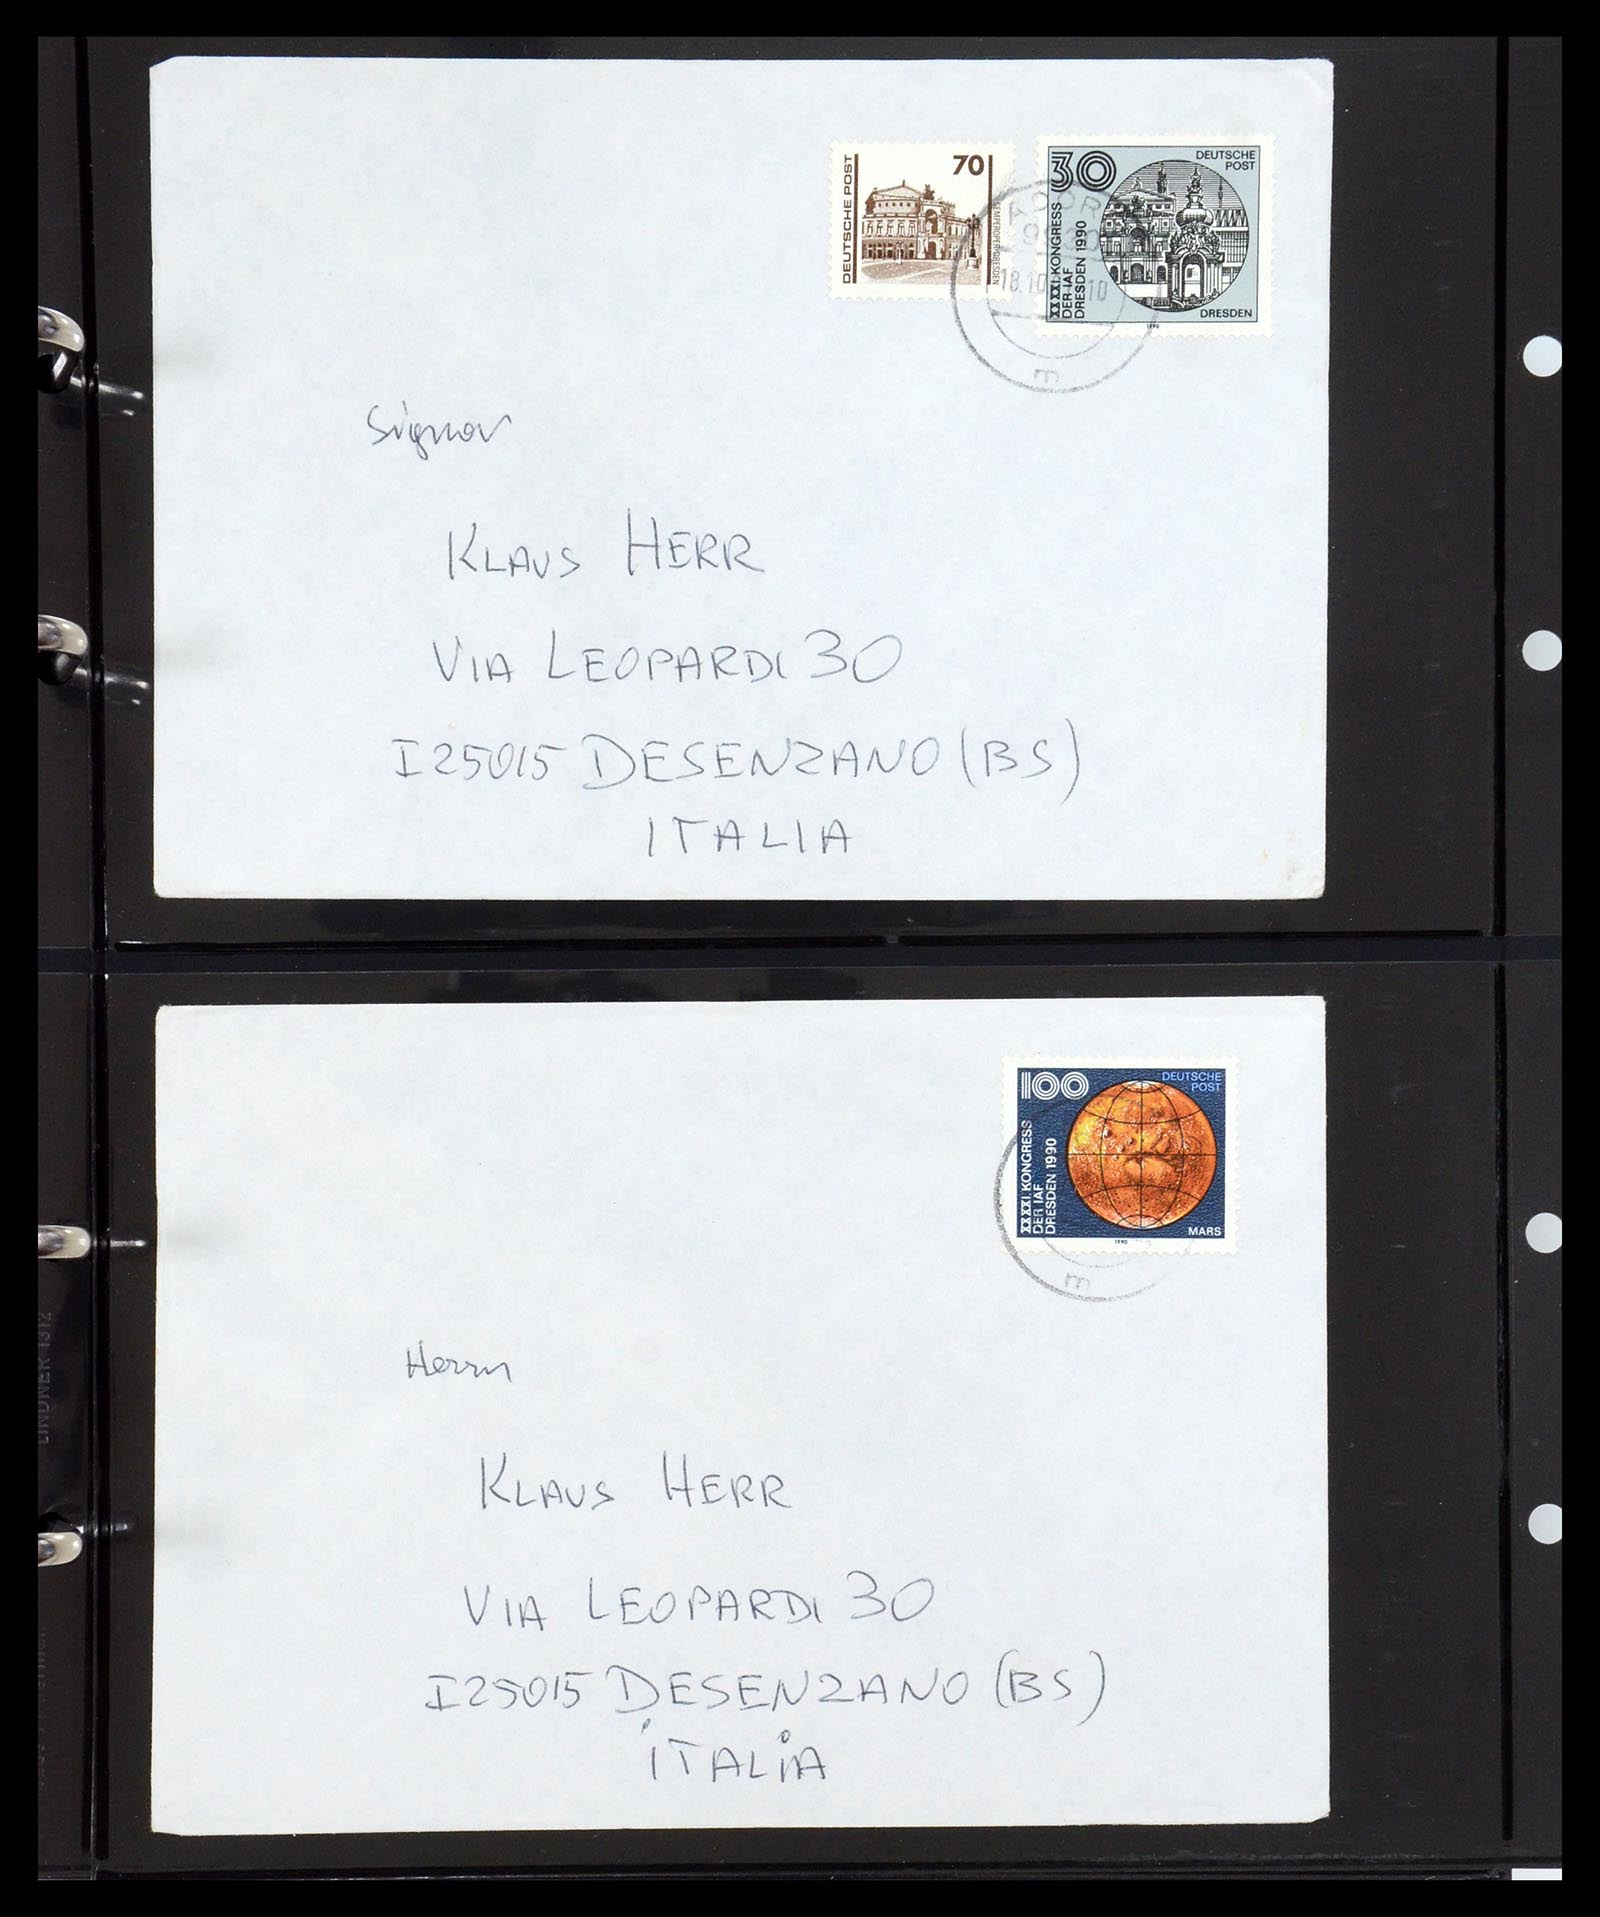 DEUTSCHE POST
70
SEMPEROPER DRESDEN
30
DEUTSCHE
POST
XXXXI. KONGRESS
DER IAF
DRESDEN 1990
DRESDEN
1990
ADOR
9930
18.10
10
m
Signor
KLAUS HERR
VIA LEOPARDI 30
I 25015 DESENZANO (BS)
ITALIA
100
DEUTSCHE
POST
XXXXI. KONGRESS
DER IAF
DRESDEN 1990
MARS
1990
m
Herrn
KLAUS HERR
VIA LEOPARDI 30
I 25015 DESENZANO (BS)
ITALIA
LINDNER 1312